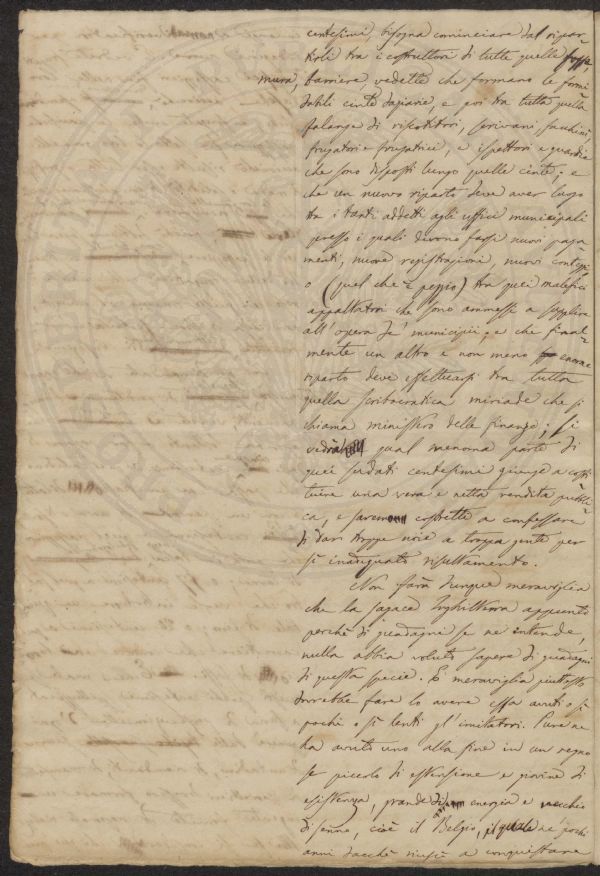 centesimi, bisogna cominciare dal ripar
tirli tra i costruttori di tutte quelle fosse,
mura, barriere, vedette che formano le formi
dabili cinte daziarie, e poi tra tutta quella
falange di ripetitori, scrivani facchini,
frugatori e frugatrici, e ispettori e guardie
che sono disposti lungo quelle cinte; e
che un nuovo riparto deve aver luogo
tra i tanti addetti agli uffici municipali
presso i quali devono farsi nuovi paga
menti, nuove registrazioni, nuovi conteggi,
o (quel che è peggio) tra quei malefici
appaltatori che sono ammessi a supplire
all'opera de' municipii; e che final-
mente un altro e non meno enorme
riparto deve effettuarsi tra tutta
quella scribocratica miriade che si
chiama ministero delle finanze; si
vedrà qual menoma parte di
quei sudati centesimi giunge a costi
tuire una vera e netta rendita pubbli
ca, e saremo costretti a confessare
di dar troppe noie a troppa gente per
sì inadeguato risultamento.
Non farà dunque meraviglia
che la sagace Inghilterra appunto
perchè di guadagni se ne intende,
nulla abbia voluto sapere di guadagni
di questa specie. E meraviglia piuttosto
dovrebbe fare lo avere essa avuti sì
pochi e sì lenti gl'imitatori. Pure ne
ha avuto uno alla fine in un regno
se piccolo di estensione e giovine di
esistenza, grande di energia e vecchio
di senno, cioè il Belgio, il quale ne' pochi
anni dacchè riuscì a conquistare